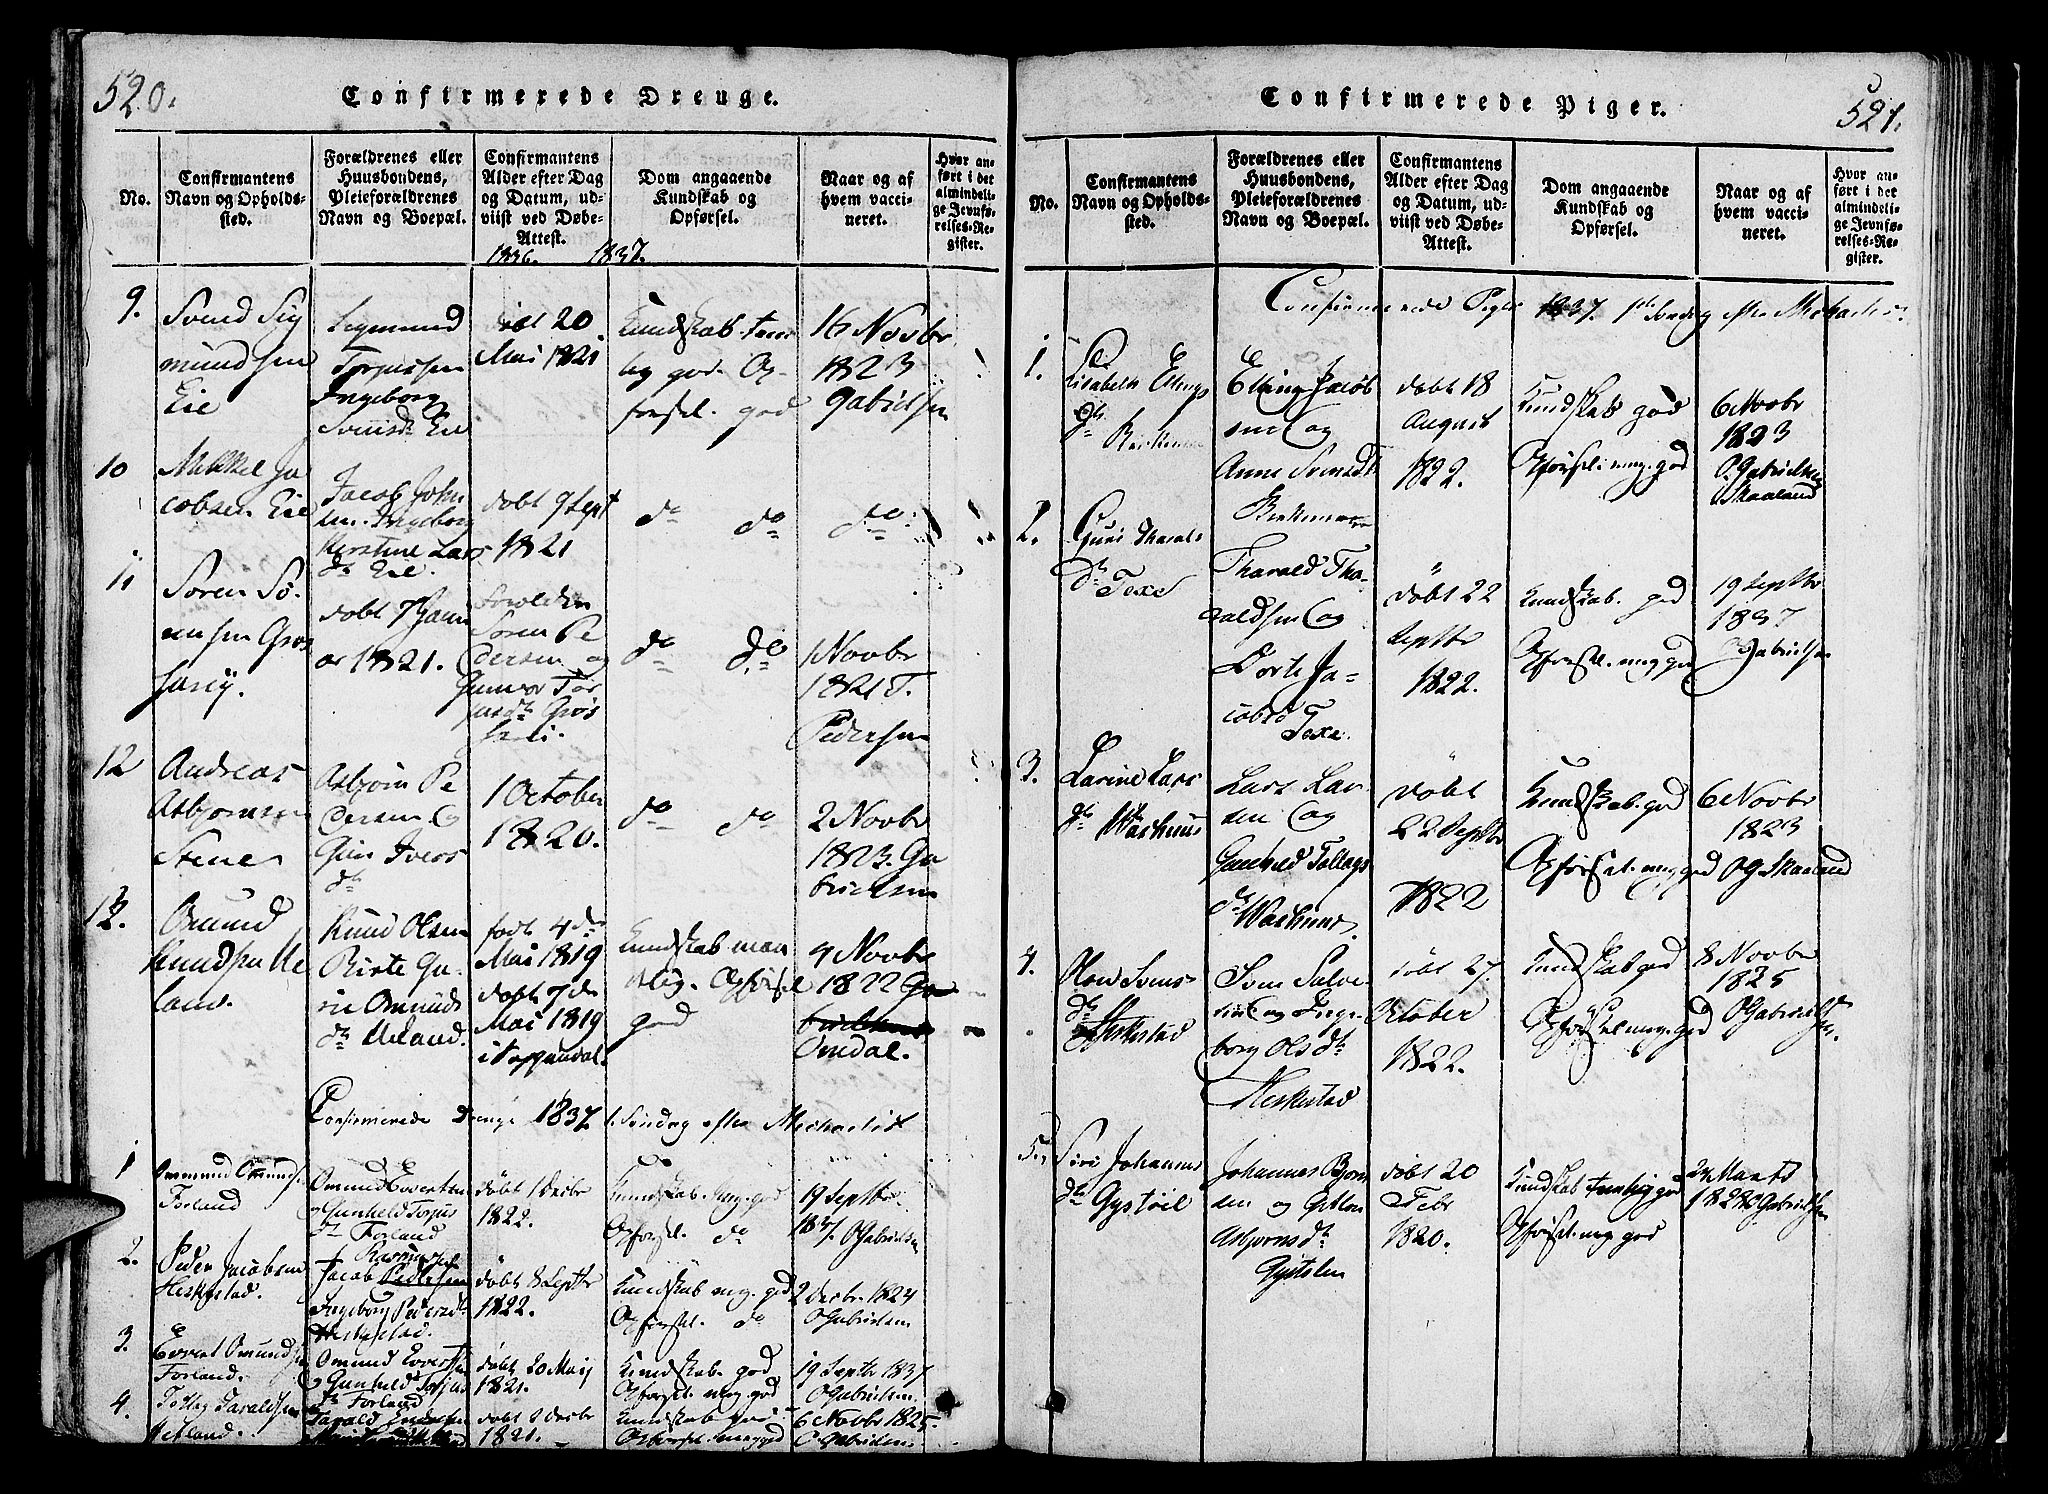 520.
Confirmerede Drenge.
No.
Confirmantens
Navn og Opholds-
sted.
Forældrenes eller
Huusbondens,
Pleieforældrenes
Navn og Boepæl.
Confirmantens
Alder efter Dag
og Datum, ud-
viist ved Døbe-
Attest.
Dom angaaende
Kundskab og
Opførsel.
Naar og af
hvem vacci-
neret.
Hvor an-
ført i det
almindeli-
ge Jevnfø-
relses-Re-
gister.
1836. 1837.
9.
Svend Sig
mundsen
Eie
Sigmund
Torjussen
Ingeborg
Svensdr Eie
døbt 20
Mai 1821
Kundskab
god. Op-
førsel. god
16 Novbr
1823
Gabrielsen
10
Mikkel Ja
cobsen Eie
Jacob John
sen. Ingeborg
Kirstine Lars
dr Eie.
døbt 9 Sept
1821
do do
do
11
Søren Sø-
rensen Gros
døbt 7 Janu
ar 1821.
Forældre
Søren Pe
dersen og
Gunvor Tor
jusdr
do do
1 Novbr
1821 T.
Pedersen
12
Andreas
Asbjørnsen
Stene
Asbjørn Pe
dersen og
Guri Ivers
dr
1 October
1820.
do do
2 Novbr
1823. Ga
brielsen
13.
Omund
Knudsen Ue
land.
Knud Olsen
Birte Gu-
rie Omunds
dr Ueland.
født 4de
Mai 1819
døbt 7de
Mai 1819
i
Kundskab maa
delig. Opførsel
god
4 Novbr
1822
Omdal.
Confirmerede Drenge 1837 1. Søndag efter Michaelis
1
Ommund Omunds.
Forland
Omund Evertsen
og Gunhild Torjus
dr Forland
døbt 1 Decbr
1822.
Kundskab. meg. god
Opførsel. do
19 Septbr
1837. O Gabrielsen
2.
Peder Jacobsen
Heskestad.
Rasmussen
Jacob Pedersen
Ingeborg Pedersdr
Heskestad.
døbt 8 Septbr
1822.
Kundskab meg. god
Opførsel. do
2 Decbr 1824
O Gabrielsen
3.
Evert Omundsen
Forland.
Omund Evertsen
og Gunhild Torjus
dr Forland
døbt 20 Maij
1821.
Kundskab. god
Opførsel. meg. god
19 Septbr 1837
O Gabrielsen.
4.
Tollag Taraldsen
Hetland.
Tarald
døbt 2 Decbr
1821.
Kundskab god.
Opførsel. meg god
6 Novbr 1825.
O Gabrielsen
Confirmerede Piger.
521.
No.
Confirmantens
Navn og Opholds-
sted.
Forældrenes eller
Huusbondens,
Pleieforældrenes
Navn og Boepæl.
Confirmantens
Alder efter Dag
og Datum, ud-
viist ved Døbe-
Attest.
Dom angaaende
Kundskab og
Opførsel.
Naar og af
hvem vacci-
neret.
Hvor an-
ført i det
almindeli-
ge Jevnfø-
relses-Re-
gister.
Confirmerede Piger 1837. 1ste Søndag efter Michaelis.
1.
Lisabeth Ellings
dr
Elling Jacob
sen og
Anne Svensdr
døbt 18
August
1822.
Kundskab god
Opførsel. meg. god
6 Novbr
1823
O. Gabrielsen
Skaaland
2.
Guri Tharals
dr Toxe
Tharald Tha-
raldsen og
Dorte Ja-
cobsd
Toxe.
døbt 22
Septbr
1822.
Kundskab. god
Opførsel. meg god
19 Septbr
1837
O Gabrielsen
3.
Larine Lars
dr Washuus
Lars Lar-
sen og
Gunhild Tollags
dr Washuus.
døbt
22 Septbr
1822
Kundskab. god
Opførsel. meg god
6 Novbr
1823
O G Skaaland
4.
Svens
dr
Heskestad
Sven Salve
sen og Inge-
borg Olsdr
Heskestad
døbt 27.
October
1822.
Kundskab god
Opførsel meg. god
8 Novbr
1825
O Gabriel
sen.
5.
Siri Johannes
dr Gystøil
Johannes Bjørn
sen og
Asbjørnsdr
døbt 20
Febr
1820.
Kundskab temlig god
Opførsel. meg god
24 Marts
O Gabrielsen